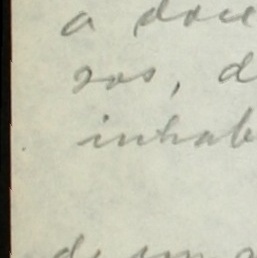 a doce
sos, d
inhab